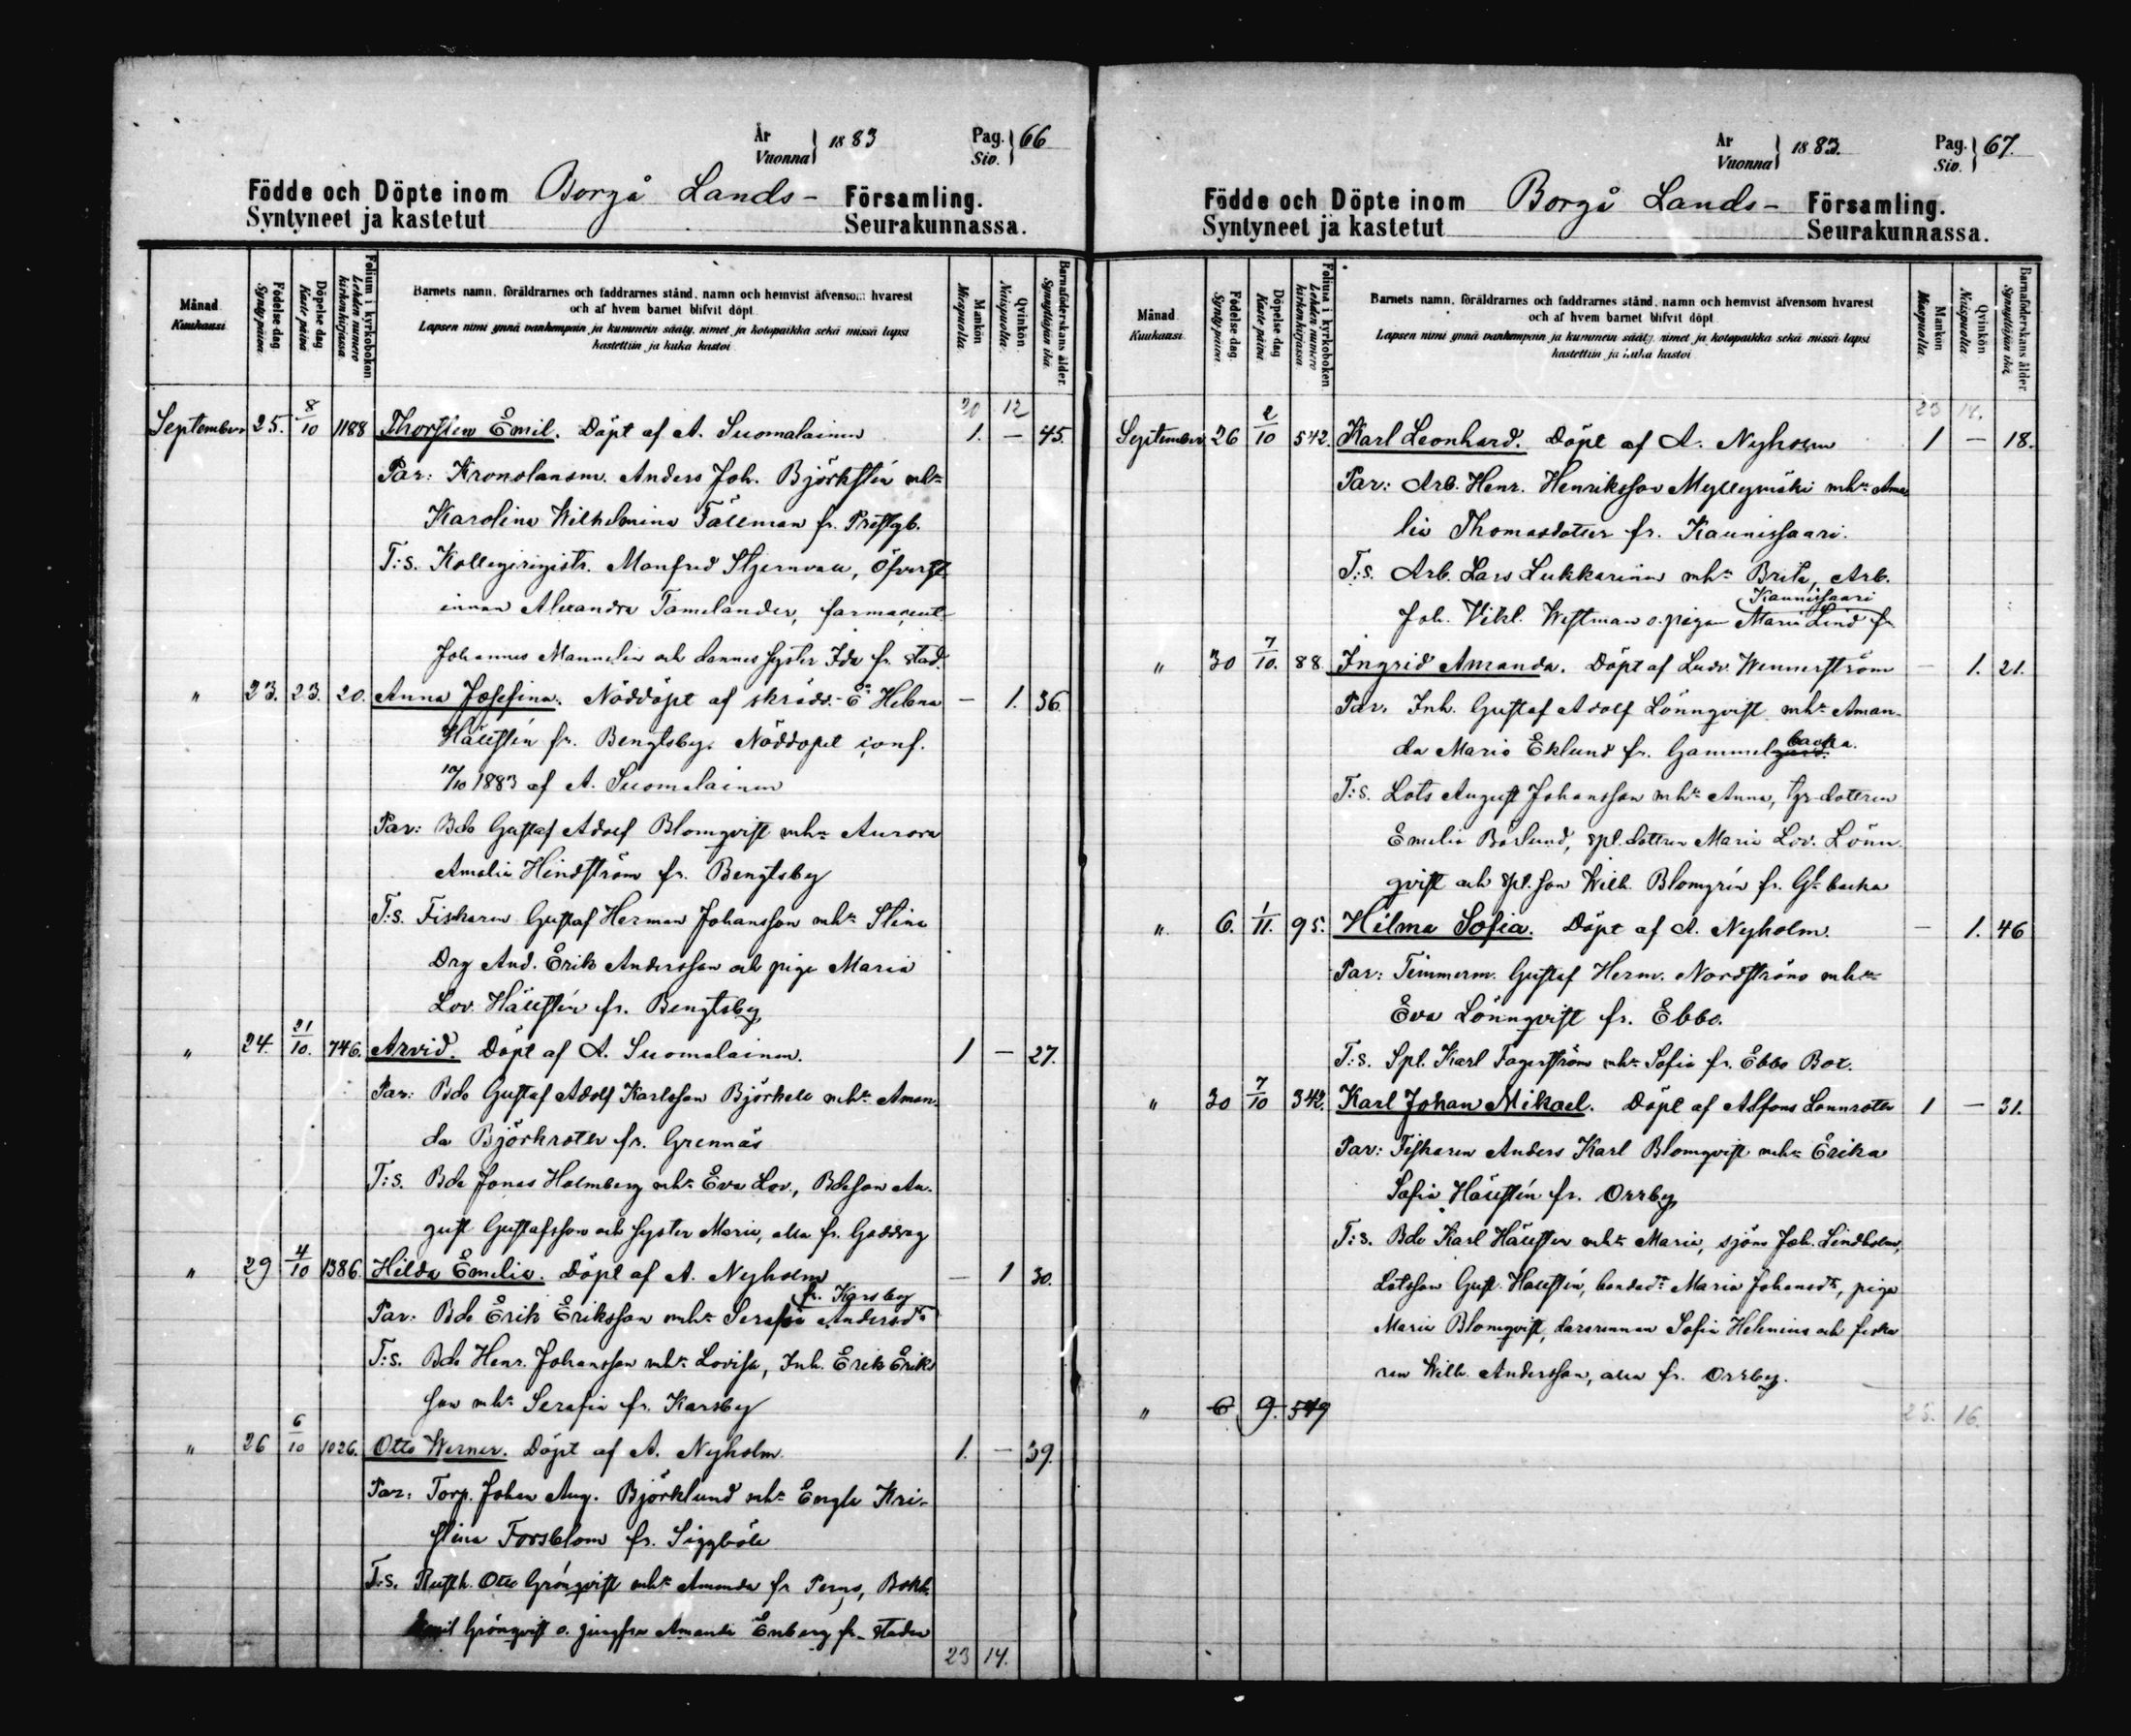 År
Vuonna } 1883
Pag.
Siv. } 66
Födde och Döpte inom Borgå Lands- Församling.
Syntyneet ja kastetut Seurakunnassa.
Månad Kuukausi
Födelse-dag. Syntypäivä.
Döpelse dag. Kaste päivä
Folium i kyrkoboken Lehden numero kirkonkirjassa.
Barnets namn, föräldrarnes och faddrarnes stånd, namn och hemvist äfvensom hvarest
och af hvem barnet blifvit döpt
Lapsen nimi ynnä vanhempain ja kummein sääty, nimet ja kotopaikka sekä missä lapsi
kastettiin ja kuka kastoi
Mankön Miespuolta.
Qvinkön. Naispuolta.
Barnaföderskans ålder. Synnyttäjän ikä.
20 12
September 25. 8/10 1188 Thorsten Emil. Döpt af A. Suomalainen 1. — 45.
Par: Kronolänsm. Anders Joh. Björkstén mhu
Karolina Wilhelmina Tallman fr. Prestgb.
T:s. Kollegiregistr. Manfred Stjernvall, Öfverste
innan Alexandra Tamelander, farmaceut.
Johannes Mannelin och dennes syster Ida fr. stad.
" 23. 23. 20. Anna Josefina. Nöddöpt af skrädd. Ea Helena — 1. 36
Hällstén fr. Bengtsby. Nöddopet conf.
10/10 1883 af A. Suomalainen
Par: Bde Gustaf Adolf Blomqvist mhu Aurora
Amalia Hindström fr. Bengtsby
T:s. Fiskaren Gustaf Herman Johansson mhu Stina
Drg And. Erik Andersson och piga Maria
Lov. Hällstén fr. Bengtsby
" 24. 21/10. 746. Arvid. Döpt af A. Suomalainen. 1 — 27.
Par: Bde Gustaf Adolf Karlsson Björkell mhu Aman-
da Björkroth fr. Grennäs
T:s. Bde Jonas Holmberg mhu Eva Lov., Bdeson Au-
gust Gustafsson och syster Maria, alla fr. Gäddrag
" 29 4/10 1386. Hilda Emilia. Döpt af A. Nyholm — 1 30.
fr. Karsby
Par: Bde Erik Eriksson mhu Serafia Andersdr
T:s. Bde Henr. Johansson mhu Lovisa, Inh. Erik Eriks
son mhu Serafia fr. Karsby
" 26 6/10 1026. Otto Werner. Döpt af A. Nyholm 1. — 39.
Par: Torp. Johan Aug. Björklund mhu Engla Kri-
stina Forsblom fr. Siggböle
T:s. Otto Grönqvist mhu Amanda fr Perno, Bokh.
Emil Grönqvist o. jungfru Amanda Enberg fr. staden
23 14.
År
Vuonna } 1883.
Pag.
Siv. } 67.
Födde och Döpte inom Borgå Lands- Församling.
Syntyneet ja kastetut Seurakunnassa.
Månad Kuukausi
Födelse-dag. Syntypäivä.
Döpelse dag Kaste päivä.
Folium i kyrkoboken Lehden numero kirkonkirjassa.
Barnets namn, föräldrarnes och faddrarnes stånd, namn och hemvist äfvensom hvarest
och af hvem barnet blifvit döpt
Lapsen nimi ynnä vanhempain ja kummein sääty, nimet ja kotopaikka sekä missä lapsi
kastettiin ja kuka kastoi
Mankön Miespuolta
Qvinkön Naispuolta.
Barnaföderskans ålder Synnyttäjän ikä
23 14.
September 26 2/10 542. Karl Leonhard. Döpt af A. Nyholm 1 — 18.
Par: Arb. Henr. Henriksson Myllymäki mhu Ama
lia Thomasdotter fr. Kaunissaari.
T:s. Arb. Lars Lukkarinen mhu Brita, Arb.
Kaunissaari
Joh. Vikt. Westman o. pigan Maria Lind fr
" 30 7/10. 88. Ingrid Amanda. Döpt af Ludv. Wennerström — 1. 21.
Par. Inh. Gustaf Adolf Lönnqvist mhu Aman-
da Maria Eklund fr. Gammelbacka.
T:s. Lots August Johansson mhu Anna, tpr dottren
Emelia Böslund, spl. dottren Maria Lov. Lönn
qvist och spl. son Wilh. Blomgrén fr. Gl. backa
" 6. 1/11. 95. Hilma Sofia. Döpt af A. Nyholm. — 1. 46
Par: Timmerm. Gustaf Herm. Nordström mhu
Eva Lönnqvist fr. Ebbo.
T:s. Spl. Karl Fagerström mhu Sofia fr. Ebbo Box.
" 30 7/10 342. Karl Johan Mikael. Döpt af Alfons Lönnroth 1 — 31.
Par: Fiskaren Anders Karl Blomqvist mhu Erika
Sofia Hällstén fr. Orrby
T:s. Bde Karl Hällstén mhu Maria, sjöm. Joh. Lindholm,
Lotsson Gust. Hällstén, bondedr Maria Johansdr, piga
Maria Blomqvist, Sofia Helenius och fiska
ren Wilh. Andersson, alla fr. Orrby.
" 6 9. 549
25. 16.